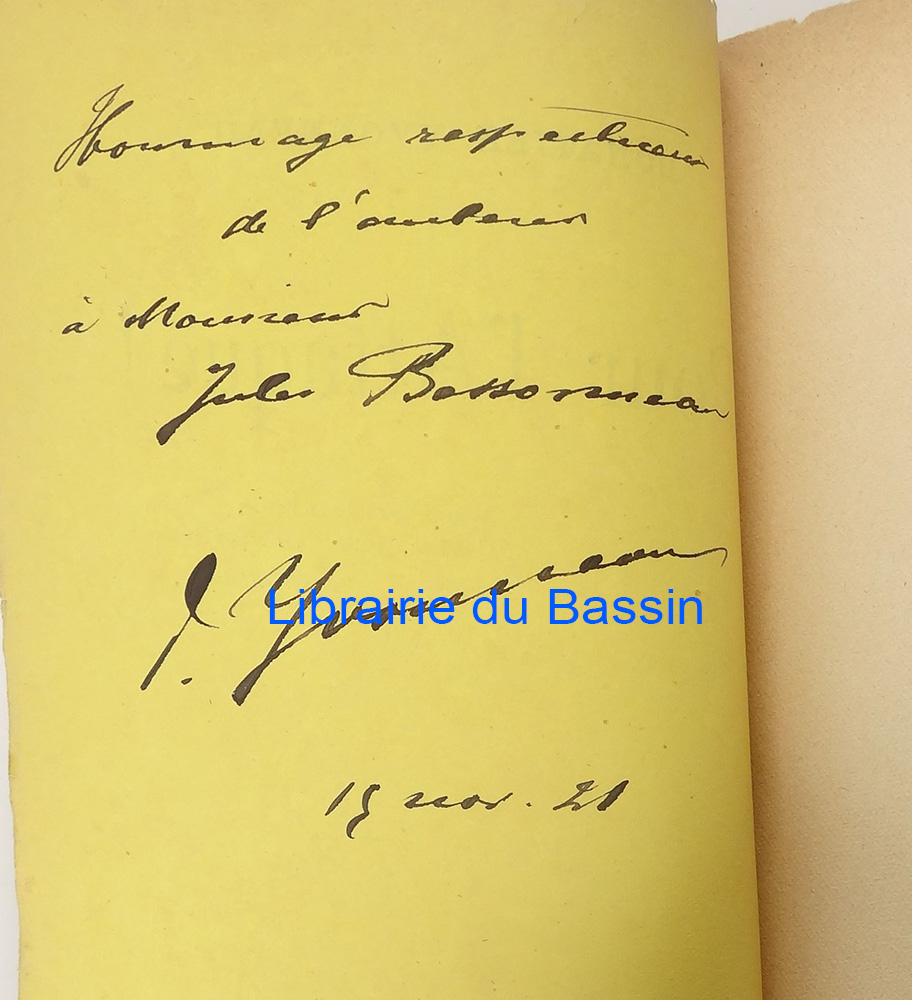 Hommage respectueux
de l'auteur
à Monsieur
Jules Bessonneau
Librairie du Bassin
nov. 21